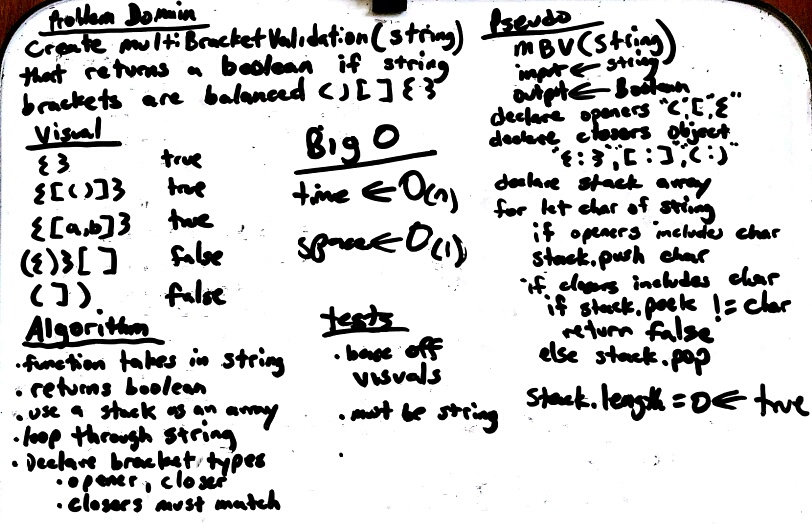 Problem Domain
Create multiBracketValidation(string)
that returns a boolean if string
brackets are balanced ( ) [ ] { }
Visual
{ } true
{[( )]} true
{[a,b]} true
({)}[ ] false
( ] ) false
Algorithm
• function takes in string
• returns boolean
• use a stack as an array
• loop through string
• Declare bracket types
• opener, closer
• closers must match
Big O
time ← O(n)
space ← O(1)
tests
• base off
visuals
• must be string
•
Pseudo
MBV(String)
input ← string
output ← Boolean
declare openers "(", "[", "{"
declare closers object
"{:}", "[:]", "(:)"
declare stack array
for let char of string
if openers includes char
stack.push char
if closers includes char
if stack.peek != char
return false
else stack.pop
Stack.length = 0 ← true